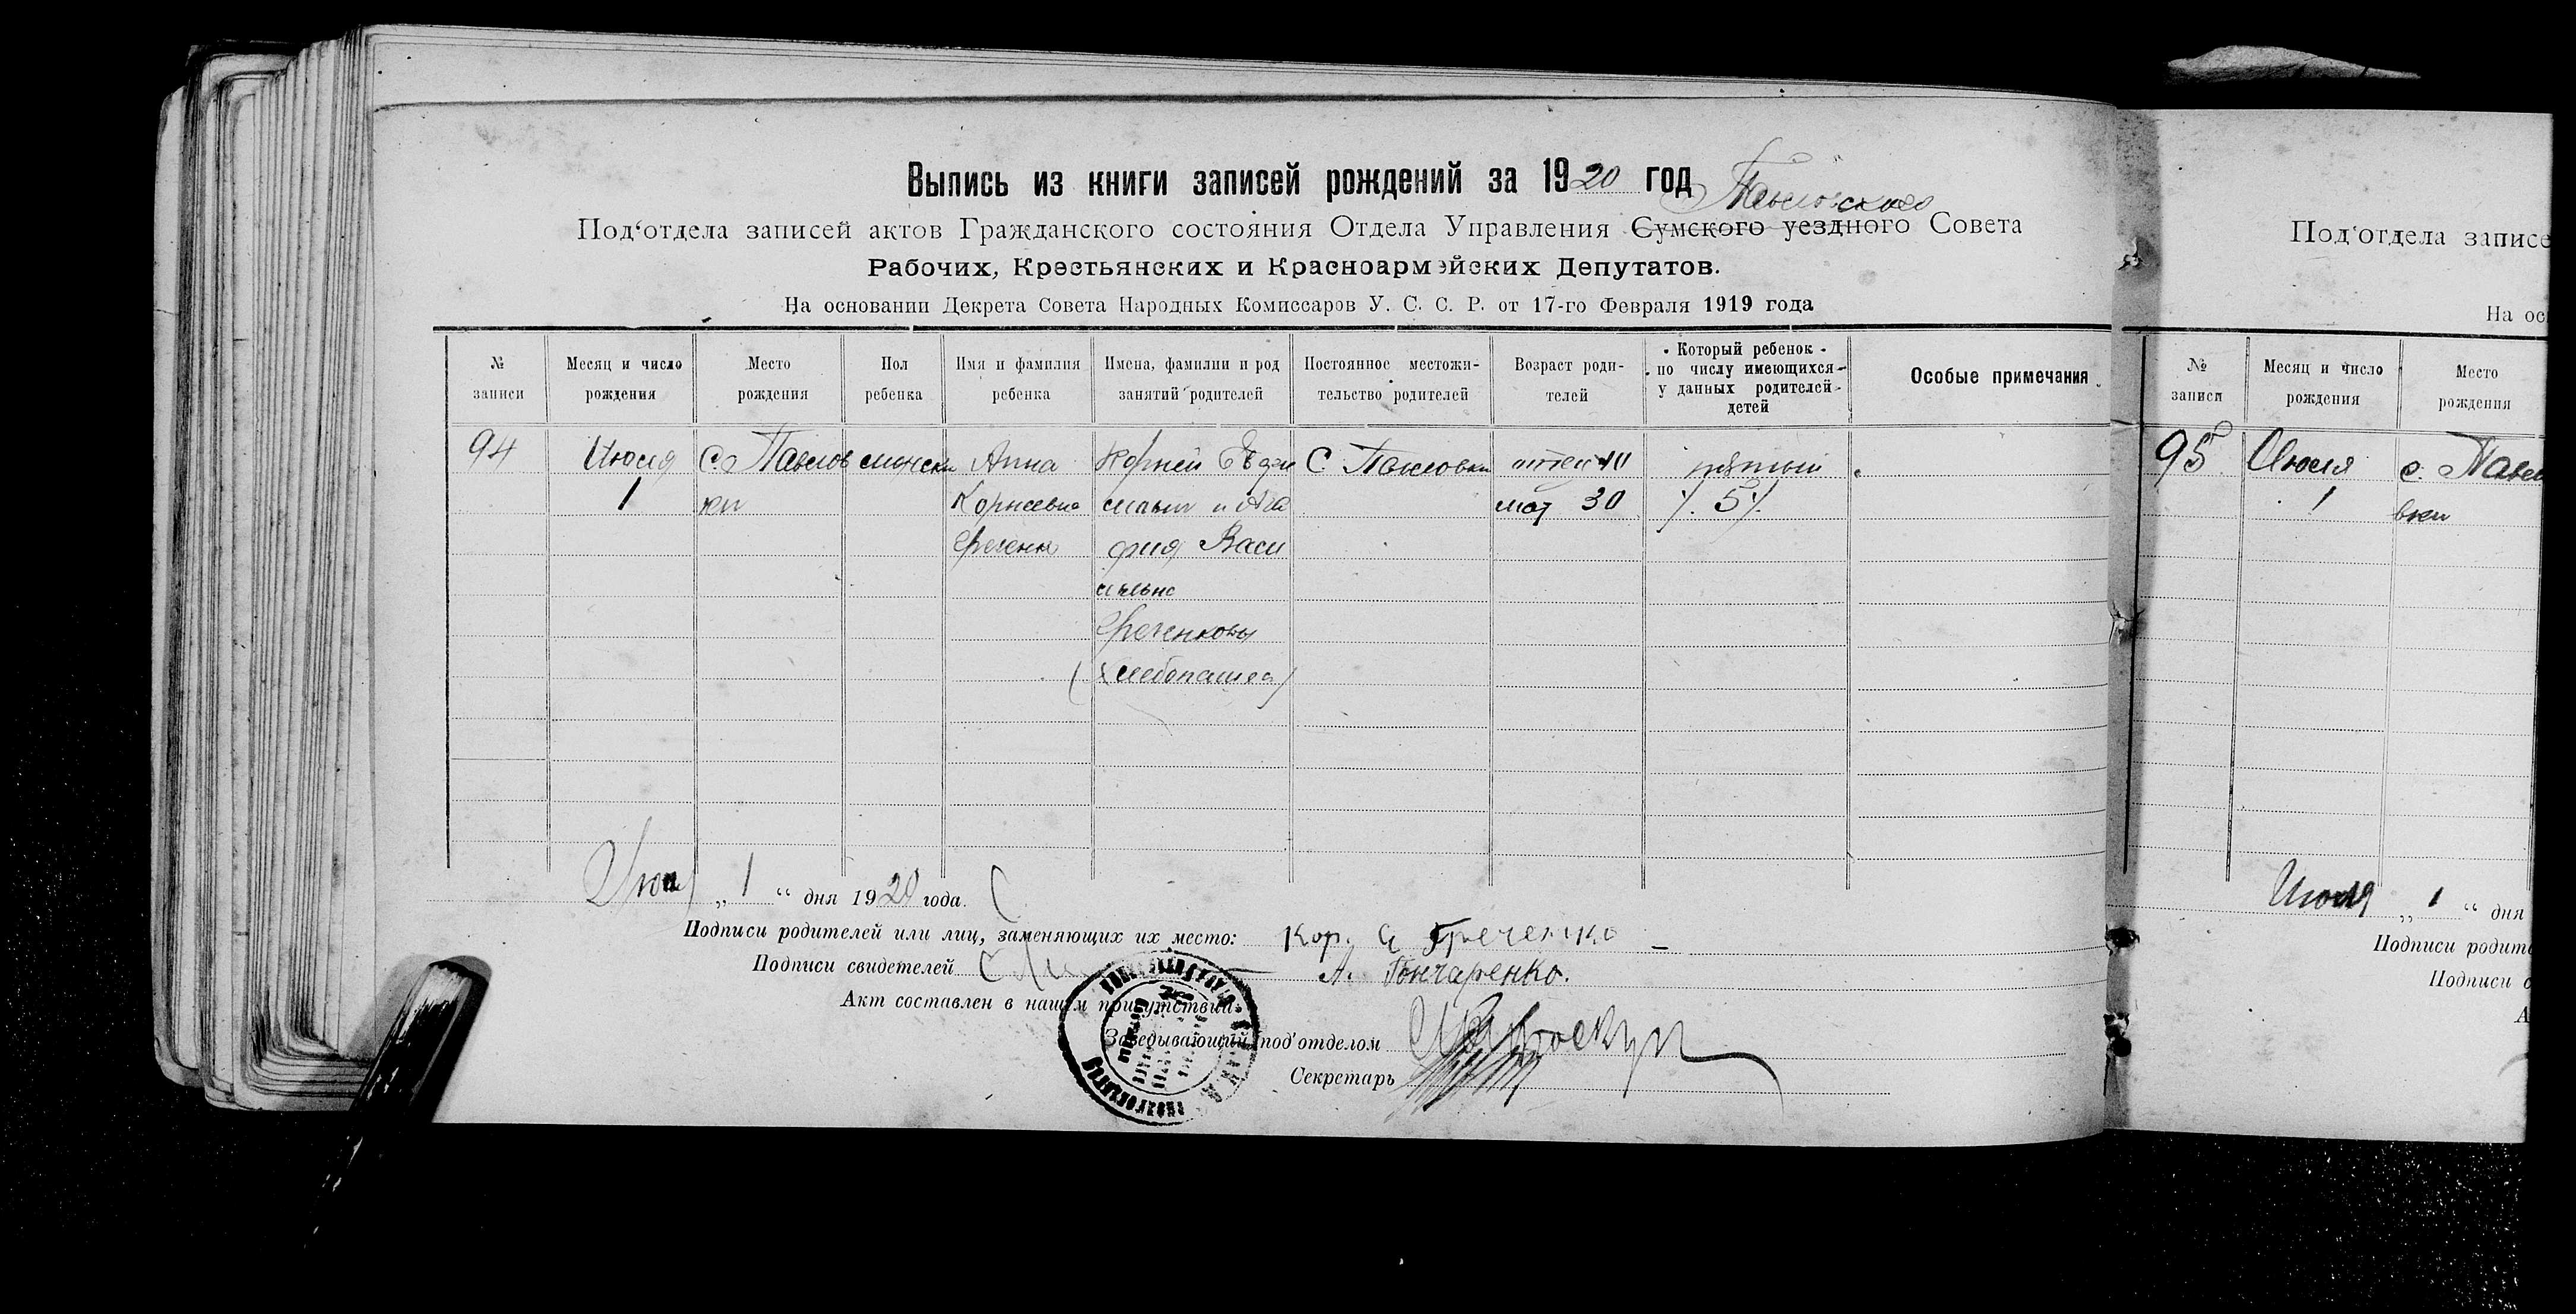 Выпись из книги записей рождений за 1920 год
Павловского
Под'отдела записей актов Гражданского состояния Отдела Управления Сумского уездного Совета
Рабочих, Крестьянских и Красноармейских Депутатов.
На основании Декрета Совета Народных Комиссаров У. С. С. Р. от 17-го Февраля 1919 года
№ записи
Месяц и число рождения
Место рождения
Пол ребенка
Имя и фамилия ребенка
Имена, фамилии и род занятий родителей
Постоянное местожительство родителей
Возраст родителей
Который ребенок по числу имеющихся у данных родителей детей
Особые примечания
94
Июля
1
С. Павлов
ки
женски
Анна
Корнеевна
Корней
Васи
льевна
Греченковы
(хлебопашец)
С. Павловки
отец 40
мат 30
пятый
/. 5 /.
Июля „ 1 “ дня 1920 года.
Подписи родителей или лиц, заменяющих их место: Кор. Греченко
Подписи свидетелей
А. Гончаренко.
Акт составлен в нашем присутствии:
Заведывающий под'отделом
Секретарь
Под'отдела записе
На ос
№ записи
Месяц и число рождения
Место рождения
95
Июля
1
с. Павл
вки
Июля „ 1 “ дня
Подписи родите
Подписи с
А